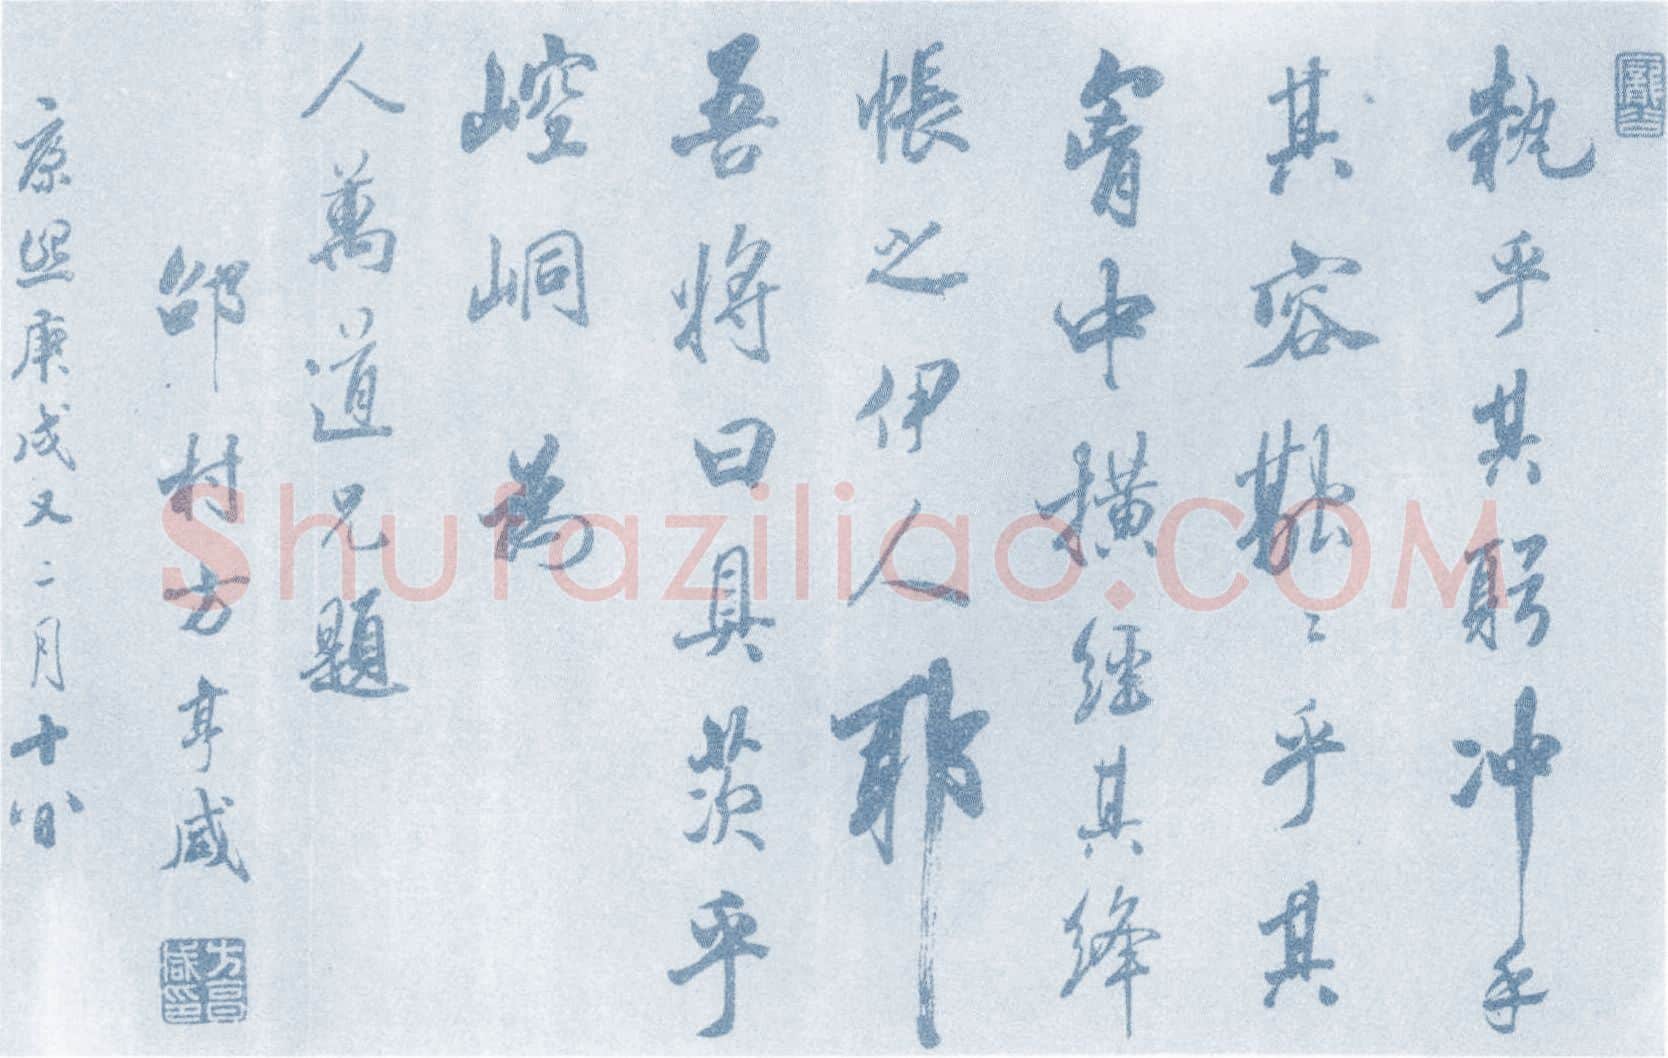 執乎其躬冲乎
其容耽〻乎其
胷中横經其絳
帳之伊人耶
吾將曰具茨乎
崆峒為
人萬道兄題
邵村方亨咸
康熙庚戌又二月十八日
方亨咸印
Shufaziliao.COM